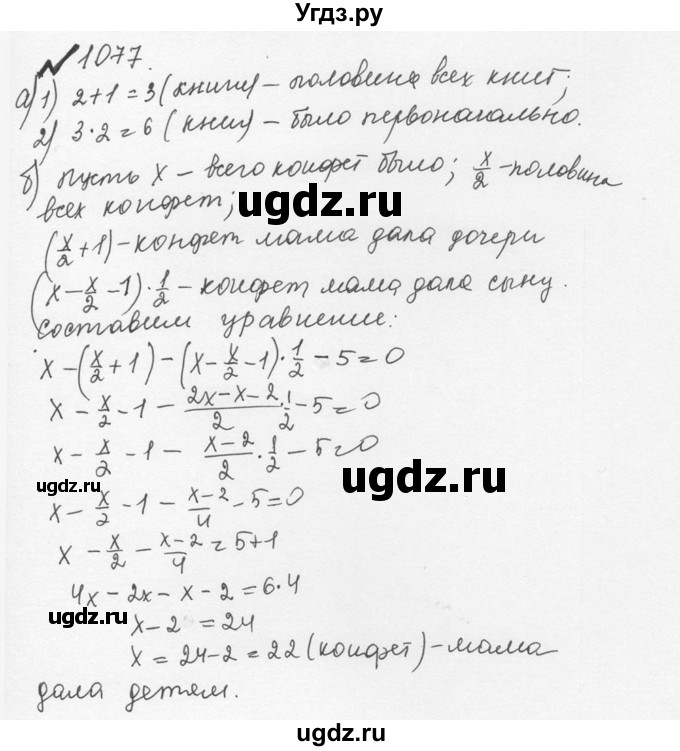 Угдз.ру
№ 1077.
а) 1) 2+1=3 (книги) – половина всех книг;
2) 3·2=6 (книг) – было первоначально.
б) пусть x – всего конфет было; x/2 - половина
всех конфет;
ugdz.ru
(x/2+1) – конфет мама дала дочери
(x-x/2-1)·1/2 – конфет мама дала сыну.
Составим уравнение:
x-(x/2+1)-(x-x/2-1)·1/2-5=0
x-x/2-1-(2x-x-2)/2·1/2-5=0
x-x/2-1-(x-2)/2·1/2-5=0
ugdz.ru
ugdz.ru
x-x/2-1-(x-2)/4-5=0
x-x/2-(x-2)/4=5+1
4x-2x-x-2=6·4
ugdz.ru
x-2=24
x=24-2=22 (конфет) – мама
дала детям.
ugdz.ru